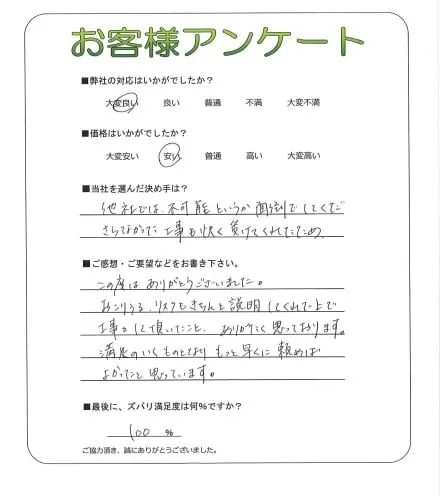 お客様アンケート
■弊社の対応はいかがでしたか?
大変良い 良い 普通 不満 大変不満
■価格はいかがでしたか?
大変安い 安い 普通 高い 大変高い
■当社を選んだ決め手は?
他社では、不可能というか面倒でしてくだ
さらなかった工事も快く負けてくれたため
■ご感想・ご要望などをお書き下さい。
この度はありがとうございました。
おこりうるリスクもきちんと説明してくれた上で
工事をして頂いたこと、ありがたく思っております。
満足のいくものとなりもっと早くに頼めば
よかったと思っています。
■最後に、ズバリ満足度は何%ですか?
100 %
ご協力頂き、誠にありがとうございました。